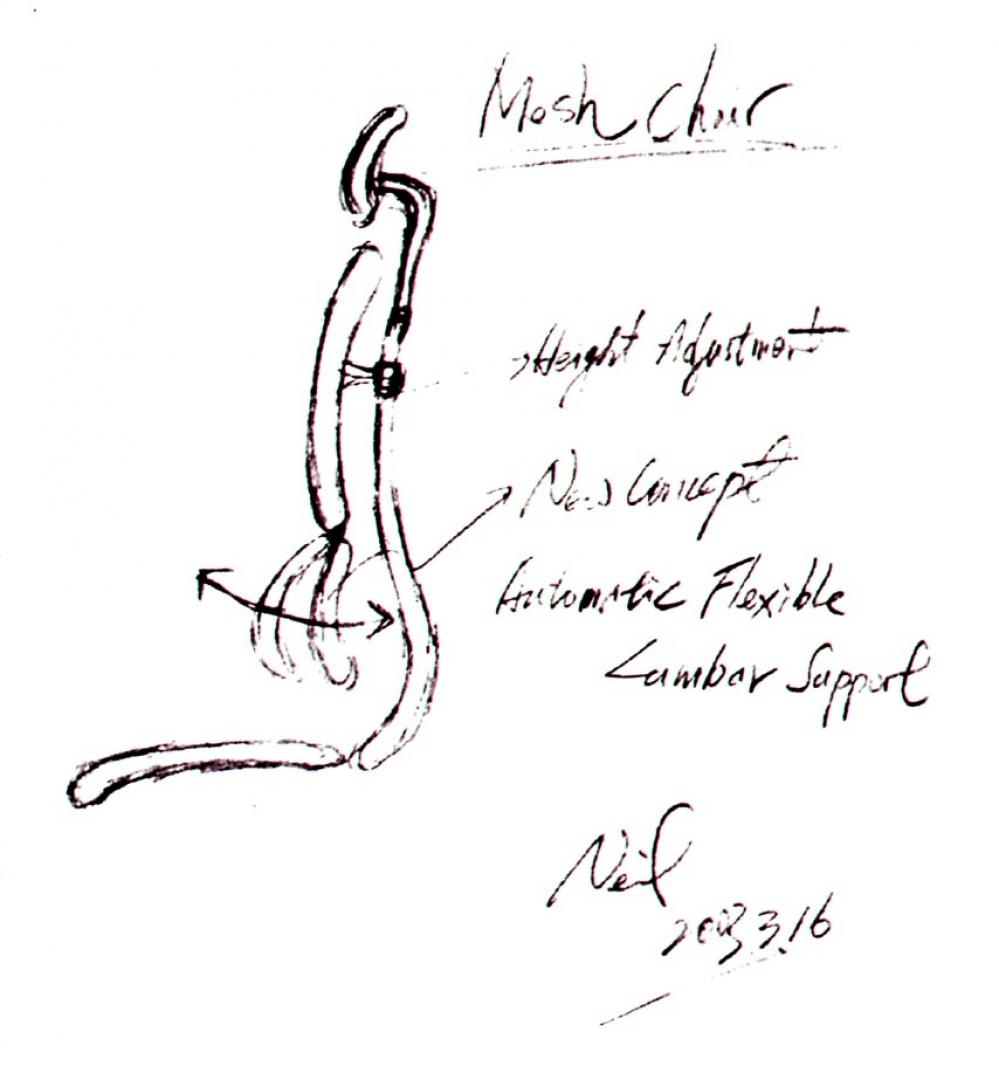 Mesh Chair
Height Adjustment
New Concept
Automatic Flexible
Lumbar Support
Neil
3.16